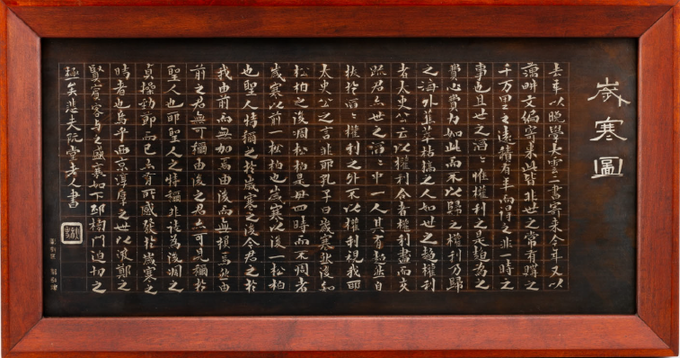 歲寒圖
去年以晚學大雲二書寄來今年又以
藕耕文編寄來此皆非世之常有購之
千万里之遠積有年而得之非一時之
事也且世之滔〻惟權利之是趨爲之
費心費力如此而不以歸之權利乃歸
之海外蕉萃枯槁之人如世之趨權利
者太史公云以權利合者權利盡而交
疎君亦世之滔〻中一人其有超然自
拔於滔〻權利之外不以權利視我耶
太史公之言非耶孔子曰歲寒然後知
松柏之後凋松柏是毋四時而不凋者
歲寒以前一松柏也歲寒以後一松柏
也聖人特稱之於歲寒之後今君之於
我由前而無加焉由後而無損焉然由
前之君無可稱由後之君亦可見稱於
聖人也耶聖人之特稱非徒爲後凋之
貞操勁節而已亦有所感發於歲寒之
時者也烏乎西京淳厚之世以汲鄭之
賢賓客與之盛衰如下邳榜門迫切之
極矣悲夫阮堂老人書